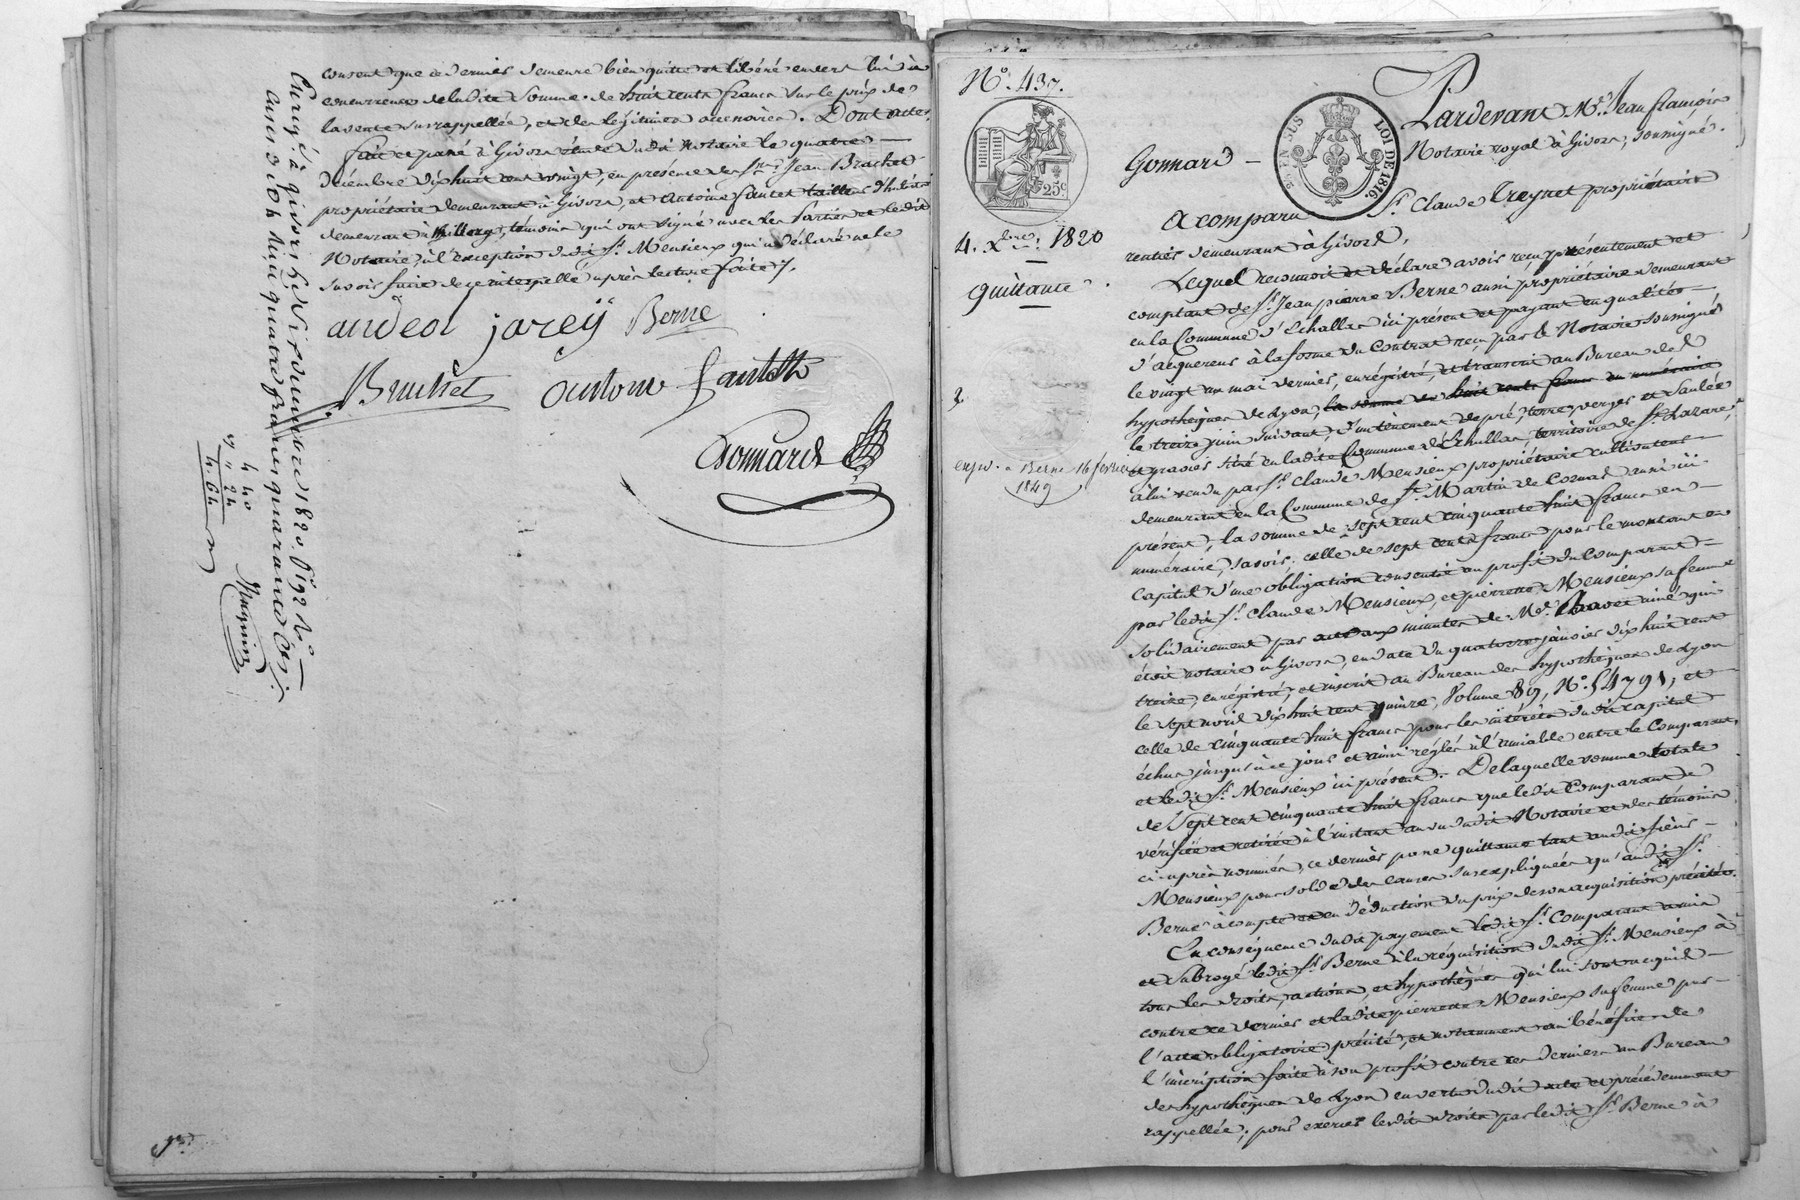 consent que ce dernier demeure bien quitte et libéré envers lui à
concurrence de ladite somme de huit cents francs sur le prix de
la vente susrappellée, et des légitimes accessoires. Dont acte,
fait et passé à Givors étude dudit Notaire le quatre
décembre dix huit cent vingt, en présence des Srs Jean Brachet
propriétaire demeurant à Givors, et Antoine Fautet tailleur d'habits
demeurant à Millery, témoins qui ont signé avec les Parties et ledit
Notaire, à l'exception dudit Sr. Mensieux qui a déclaré ne le
savoir faire de ce interpellé après lecture faite.
andéol jarey Berne
Brachet antoine fautet
Gonnard
Enregé. à Givors le dix décembre 1820. fo. 192 Ro.
cases 3 et 4 Reçu quatre francs quarante Cts.
4 40
" 24
4. 64
No. 437.
25c
LOI DE 1816.
4. Xbre. 1820
quittance.
Pardevant Me. Jean françois
Gonnard Notaire royal à Givors, soussigné.
A comparu Sr. Claude Treynet propriétaire
rentier demeurant à Givors,
Lequel reconnoit et déclare avoir reçu présentement et
comptant de Sr. Jean pierre Berne aussi propriétaire demeurant
en la Commune d'Echallas ici présent et payant en qualité
d'acquéreur à la forme du Contrat reçu par le Notaire soussigné
le vingt un mai dernier, enrégistré, et transcrit au Bureau des
hypothèques de Lyon, la somme de huit cents francs en numéraire
le treize juin suivant, d'un tènement de pré, terre, verger et Saulée
et gravier situé en ladite Commune d'Echallas, territoire de St. Lazare,
à lui vendu par Sr. Claude Mensieux propriétaire cultivateur
demeurant en la Commune de St. Martin de Cornas aussi ici
présent, la somme de sept cent cinquante huit francs en
numéraire, savoir: celle de sept cents francs pour le montant en
Capital d'une obligation consentie au profit du Comparant
par ledit Sr. Claude Mensieux, et pierrette Mensieux sa femme
solidairement par acte aux minutes de Me. Chavet ainé qui
étoit notaire à Givors, en date du quatorze janvier dix huit cent
treize, enrégistré, et inscrit au Bureau des hypothèques de Lyon
le sept avril dix huit cent quinze, Volume 89, No. 54791, et
celle de cinquante huit francs pour les intérêts dudit capital
échus jusqu'à ce jour et ainsi réglés à l'amiable entre le Comparant
et ledit Sr. Mensieux ici présent. De laquelle somme totale
de sept cent cinquante huit francs que ledit Comparant a
vérifiée et retirée à l'instant au vu dudit Notaire et des témoins
ci-après nommés, ce dernier passe quittance tant audit Sieur
Mensieux pour solde des causes susexpliquées qu'audit Sr.
Berne à compte et en déduction du prix de son acquisition précitée.
En conséquence dudit payement ledit Sr. Comparant a mis
et subrogé ledit Sr. Berne à la réquisition dudit Sr. Mensieux à
tous les droits, actions, et hypothèques qui lui sont acquis
contre ce dernier et ladite pierrette Mensieux sa femme par
l'acte obligatoire précité, et notamment au bénéfice de
l'inscription faite à son profit contre ces derniers au Bureau
des hypothèques de Lyon en vertu dudit acte et précédemment
rappellée; pour exercer lesdits droits par ledit Sr. Berne à
expe. à Berne 16 février
1849